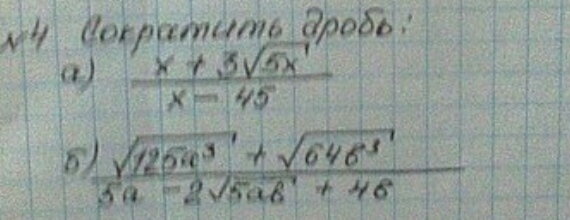 №4 Сократить дробь:
а) x + 3√5x
x - 45
б) √125a³ + √64b³
5a - 2√5ab + 4b